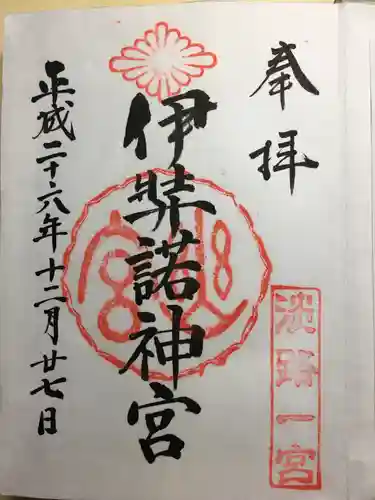 奉拝
伊弉諾神宮
平成二十六年十二月廿七日
淡路一宮